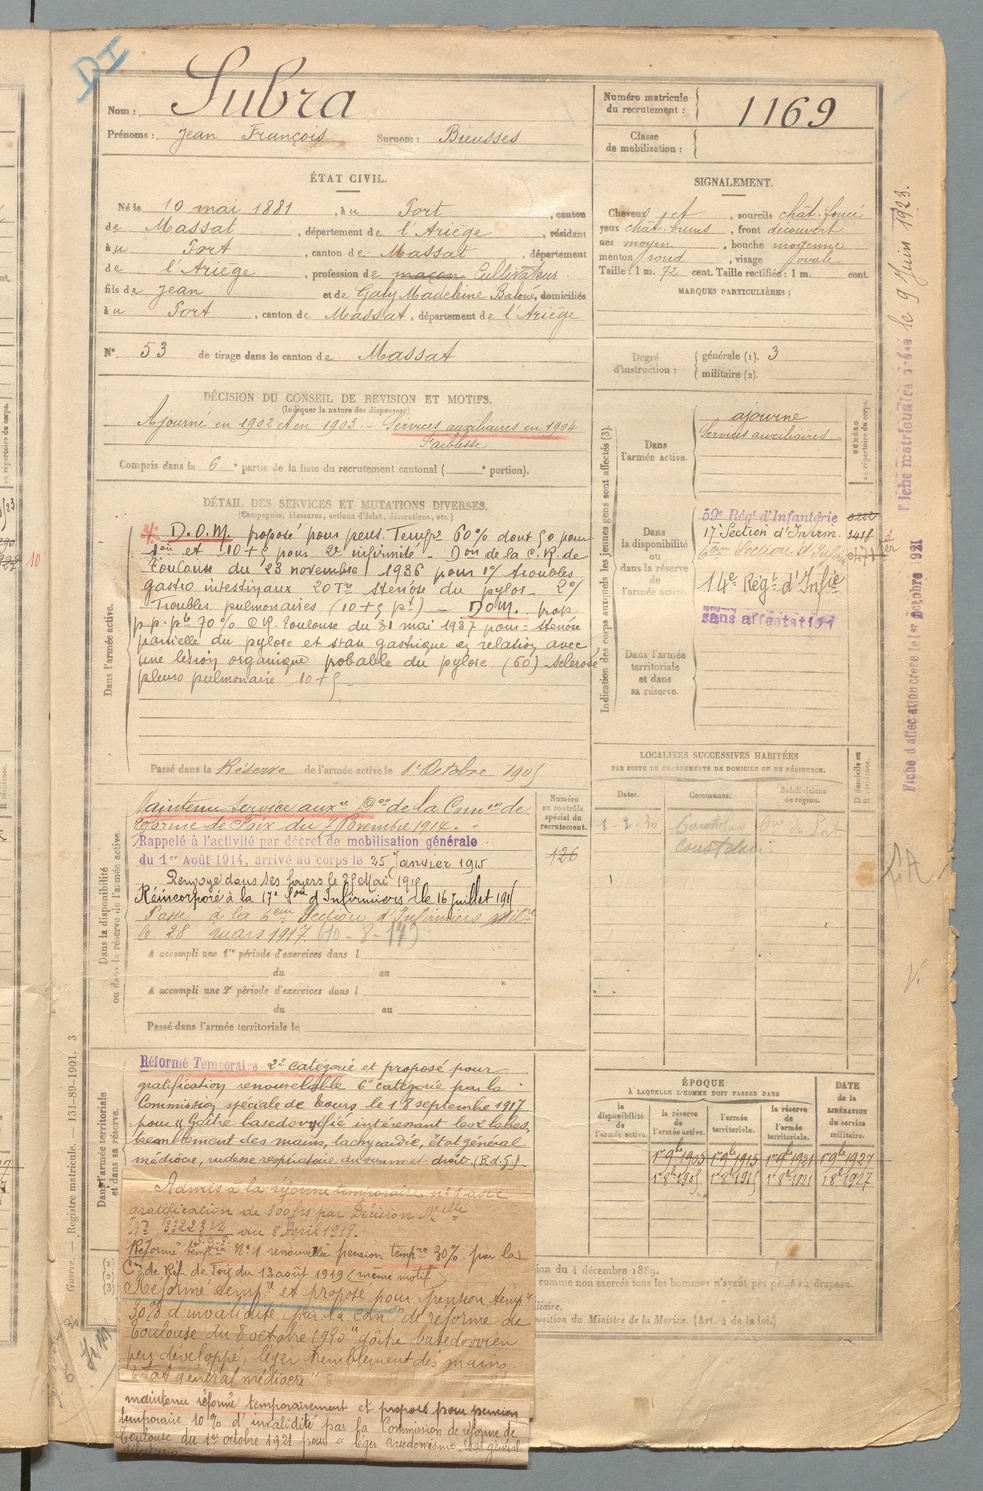 DI
Nom : Subra
Prénoms : Jean François Surnom : Bieusses
Numéro matricule du recrutement : 1169
Classe de mobilisation :
ÉTAT CIVIL.
Né le 10 mai 1881, à u Port, canton
de Massat, département de l'Ariège, résidant
à u Port, canton de Massat, département
de l'Ariège, profession de maçon Cultivateur
fils de Jean et de Galy Madeleine, domiciliés
à u Port, canton de Massat, département de l'Ariège
N° 53 de tirage dans le canton de Massat
SIGNALEMENT.
Cheveux et, sourcils chât. foncé
yeux chât. bruns, front découvert
nez moyen, bouche moyenne
menton rond, visage ovale
Taille : 1 m. 72 cent. Taille rectifiée : 1 m. cent.
MARQUES PARTICULIÈRES :
Degré d'instruction : générale (1). 3
militaire (2).
DÉCISION DU CONSEIL DE REVISION ET MOTIFS.
(Indiquer la nature des dispenses)
Ajourné en 1902 et en 1903. - Services auxiliaires en 1904
Faiblesse
Compris dans la 6e partie de la liste du recrutement cantonal ( e portion).
DÉTAIL DES SERVICES ET MUTATIONS DIVERSES.
(Campagnes, blessures, actions d'éclat, décorations, etc.)
Dans l'armée active.
D.O.M. proposé pour pens. Tempre 60% dont 50 pour
1ère et 10+5 pour 2e infirmité - Don de la C.R. de
Toulouse du 23 novembre 1936 pour 1°/ troubles
gastro intestinaux sténose du pylore - 2°/
Troubles pulmonaires (10+5 pt) - D.O.M. prop.
p.p. pte 70% C.R. Toulouse du 31 mai 1937 pour = sténose
partielle du pylore et stase gastrique en relation avec
une lésion organique probable du pylore (60) sclérose
pleuro pulmonaire 10+5 -
Passé dans la Réserve de l'armée active le 1er Octobre 1905
Indication des corps auxquels les jeunes gens sont affectés (3).
Dans l'armée active.
ajourné
Services auxiliaires
NUMÉRO au répertoire du corps.
Dans la disponibilité ou dans la réserve de l'armée active.
59e Régt d'Infanterie
17e Section d'Infirm.
6ème Section d'Infir.
14e Régt d'Infie
sans affectation
Dans l'armée territoriale et dans sa réserve.
Dans la disponibilité ou dans la réserve de l'armée active.
Maintenu Service auxre Don de la Comon de
réforme de Foix du 7 Novembre 1914. -
Rappelé à l'activité par décret de mobilisation générale
du 1er Août 1914, arrivé au corps le 25 Janvier 1915
Renvoyé dans ses foyers le 25 Mai 1915
Réincorporé à la 17e Son d'Infirmiers le 16 juillet 1915
Passé à la 6ème Section d'Infirmiers milres
le 28 mars 1917. (10-8-17)
Numéro au contrôle spécial du recrutement.
126
A accompli une 1re période d'exercices dans l
du au
A accompli une 2e période d'exercices dans l
du au
Passé dans l'armée territoriale le
LOCALITÉS SUCCESSIVES HABITÉES
PAR SUITE DE CHANGEMENTS DE DOMICILE OU DE RÉSIDENCE.
Dates. Communes. Subdivisions de région. D domicile ou R résidence.
1-2-30
Dans l'armée territoriale et dans sa réserve.
Réformé Temporaire 2e catégorie et proposé pour
gratification renouvelable 6e catégorie par la
Commission spéciale de Tours le 18 septembre 1917
pour "Goitre basedowifié intéressant les 2 lobes,
tremblement des mains, tachycardie, état général
médiocre, rudesse respiratoire du sommet droit. (R.d.G.)
Admis à la réforme temporaire n° 1 avec
gratification de 300frs par Décision Mlle
N° 33223 1/2 du 8 Avril 1918.
Réformé tempre N° 1 renouvelée pension tempre 30% par la
Con de Réf. de Foix du 13 août 1919 (même motif)
Réformé tempre et proposé pour pension tempre
30% d'invalidité par la Comon de réforme de
Toulouse du 8 octobre 1920 "goitre basedowien
peu développé, léger tremblement des mains.
État général médiocre"
maintenu réformé temporairement et proposé pour pension
temporaire 10% d'invalidité par la Commission de réforme de
Toulouse du 1er octobre 1921 pour "léger Basedowisme, état général
ÉPOQUE
À LAQUELLE L'HOMME DOIT PASSER DANS
la disponibilité de l'armée active. la réserve de l'armée active. l'armée territoriale. la réserve de l'armée territoriale. DATE de la LIBÉRATION du service militaire.
1r 9bre 1905 1r 9bre 1915 1r 9bre 1921 1r 9bre 1927
1r 8bre 1905 1r 8bre 1915 1r 8bre 1921 1r 8bre 1927
ion du 4 décembre 1889.
comme non exercés tous les hommes n'ayant pas passé au drapeau.
iliaire.
position du Ministre de la Marine. (Art. 4 de la loi.)
Guerre. - Registre matricule. - 131-89-1901. 3
Fiche d'affectation créée le 1er octobre 921
Fiche matriculaire créée le 9 Juin 1923.